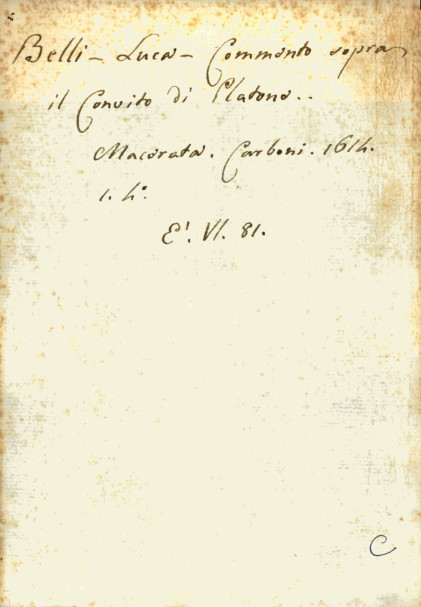 Belli - Luca - Commento sopra
il Convito di Platone..
Macerata. Carboni. 1614.
1. 4º.
E'. VI. 81.
C